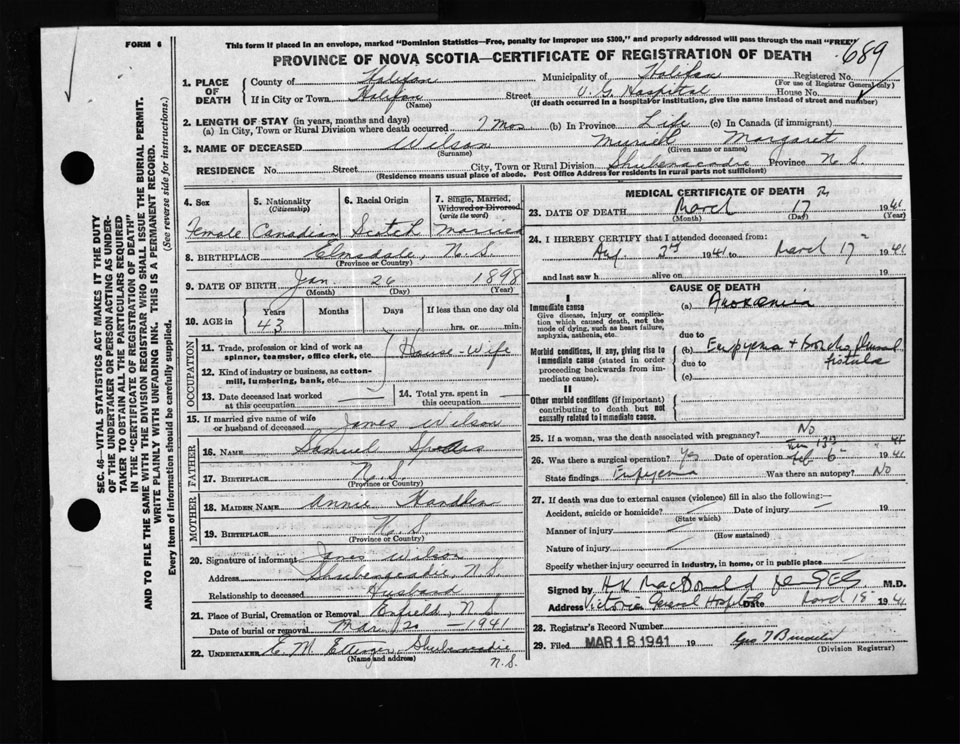 FORM 6
This form if placed in an envelope, marked "Dominion Statistics—Free, penalty for improper use $300," and properly addressed will pass through the mail "FREE"
PROVINCE OF NOVA SCOTIA—CERTIFICATE OF REGISTRATION OF DEATH
689
1. PLACE OF DEATH
County of Halifax Municipality of Halifax Registered No.
(For use of Registrar General only)
If in City or Town Halifax Street V. G. Hospital House No.
(Name) (If death occurred in a hospital or institution, give the name instead of street and number)
2. LENGTH OF STAY (in years, months and days)
(a) In City, Town or Rural Division where death occurred 7 mos (b) In Province Life (c) In Canada (if immigrant)
3. NAME OF DECEASED Wilson Muriel Margaret
(Surname) (Given name or names)
RESIDENCE No. Street City, Town or Rural Division Shubenacadie Province N.S.
(Residence means usual place of abode. Post Office Address for residents in rural parts not sufficient)
4. Sex 5. Nationality (Citizenship) 6. Racial Origin 7. Single, Married, Widowed or Divorced (write the word)
Female Canadian Scotch Married
8. BIRTHPLACE Elmsdale, N.S.
(Province or Country)
9. DATE OF BIRTH Jan 26 1898
(Month) (Day) (Year)
10. AGE in Years Months Days If less than one day old
43 hrs. or min.
OCCUPATION
11. Trade, profession or kind of work as spinner, teamster, office clerk, etc. House-Wife
12. Kind of industry or business, as cotton-mill, lumbering, bank, etc.
13. Date deceased last worked at this occupation
14. Total yrs. spent in this occupation
15. If married give name of wife or husband of deceased James Wilson
FATHER
16. NAME Samuel
17. BIRTHPLACE N.S.
(Province or Country)
MOTHER
18. MAIDEN NAME Annie
19. BIRTHPLACE N.S.
(Province or Country)
20. Signature of informant James Wilson
Address Shubenacadie, N.S.
Relationship to deceased Husband
21. Place of Burial, Cremation or Removal Enfield, N.S.
Date of burial or removal Mar 20 - 1941
22. UNDERTAKER E. M. Shubenacadie
(Name and address) N.S.
MEDICAL CERTIFICATE OF DEATH
23. DATE OF DEATH March 17 1941
(Month) (Day) (Year)
24. I HEREBY CERTIFY that I attended deceased from:
3rd 1941 to March 17 1941
and last saw h alive on 19
CAUSE OF DEATH
I
Immediate cause (a)
Give disease, injury or complication which caused death, not the mode of dying, such as heart failure, asphyxia, asthenia, etc.
due to
Morbid conditions, if any, giving rise to immediate cause (stated in order proceeding backwards from immediate cause).
(b) Empyema + Broncho pleural fistula
due to
(c)
II
Other morbid conditions (if important) contributing to death but not causally related to immediate cause.
25. If a woman, was the death associated with pregnancy? No
26. Was there a surgical operation? Yes Date of operation Feb 6 1941
State findings Empyema Was there an autopsy? No
27. If death was due to external causes (violence) fill in also the following:—
Accident, suicide or homicide? Date of injury 19
(State which)
Manner of injury
(How sustained)
Nature of injury
Specify whether injury occurred in industry, in home, or in public place
Signed by H K MacDonald M.D.
Address Victoria General Hospital Date March 18 1941
28. Registrar's Record Number
29. Filed MAR 18 1941 19
(Division Registrar)
SEC. 46—VITAL STATISTICS ACT MAKES IT THE DUTY
OF THE UNDERTAKER OR PERSON ACTING AS UNDER-
TAKER TO OBTAIN ALL THE PARTICULARS REQUIRED
IN THE "CERTIFICATE OF REGISTRATION OF DEATH"
AND TO FILE THE SAME WITH THE DIVISION REGISTRAR WHO SHALL ISSUE THE BURIAL PERMIT.
WRITE PLAINLY WITH UNFADING INK. THIS IS A PERMANENT RECORD.
Every item of information should be carefully supplied. (See reverse side for instructions.)